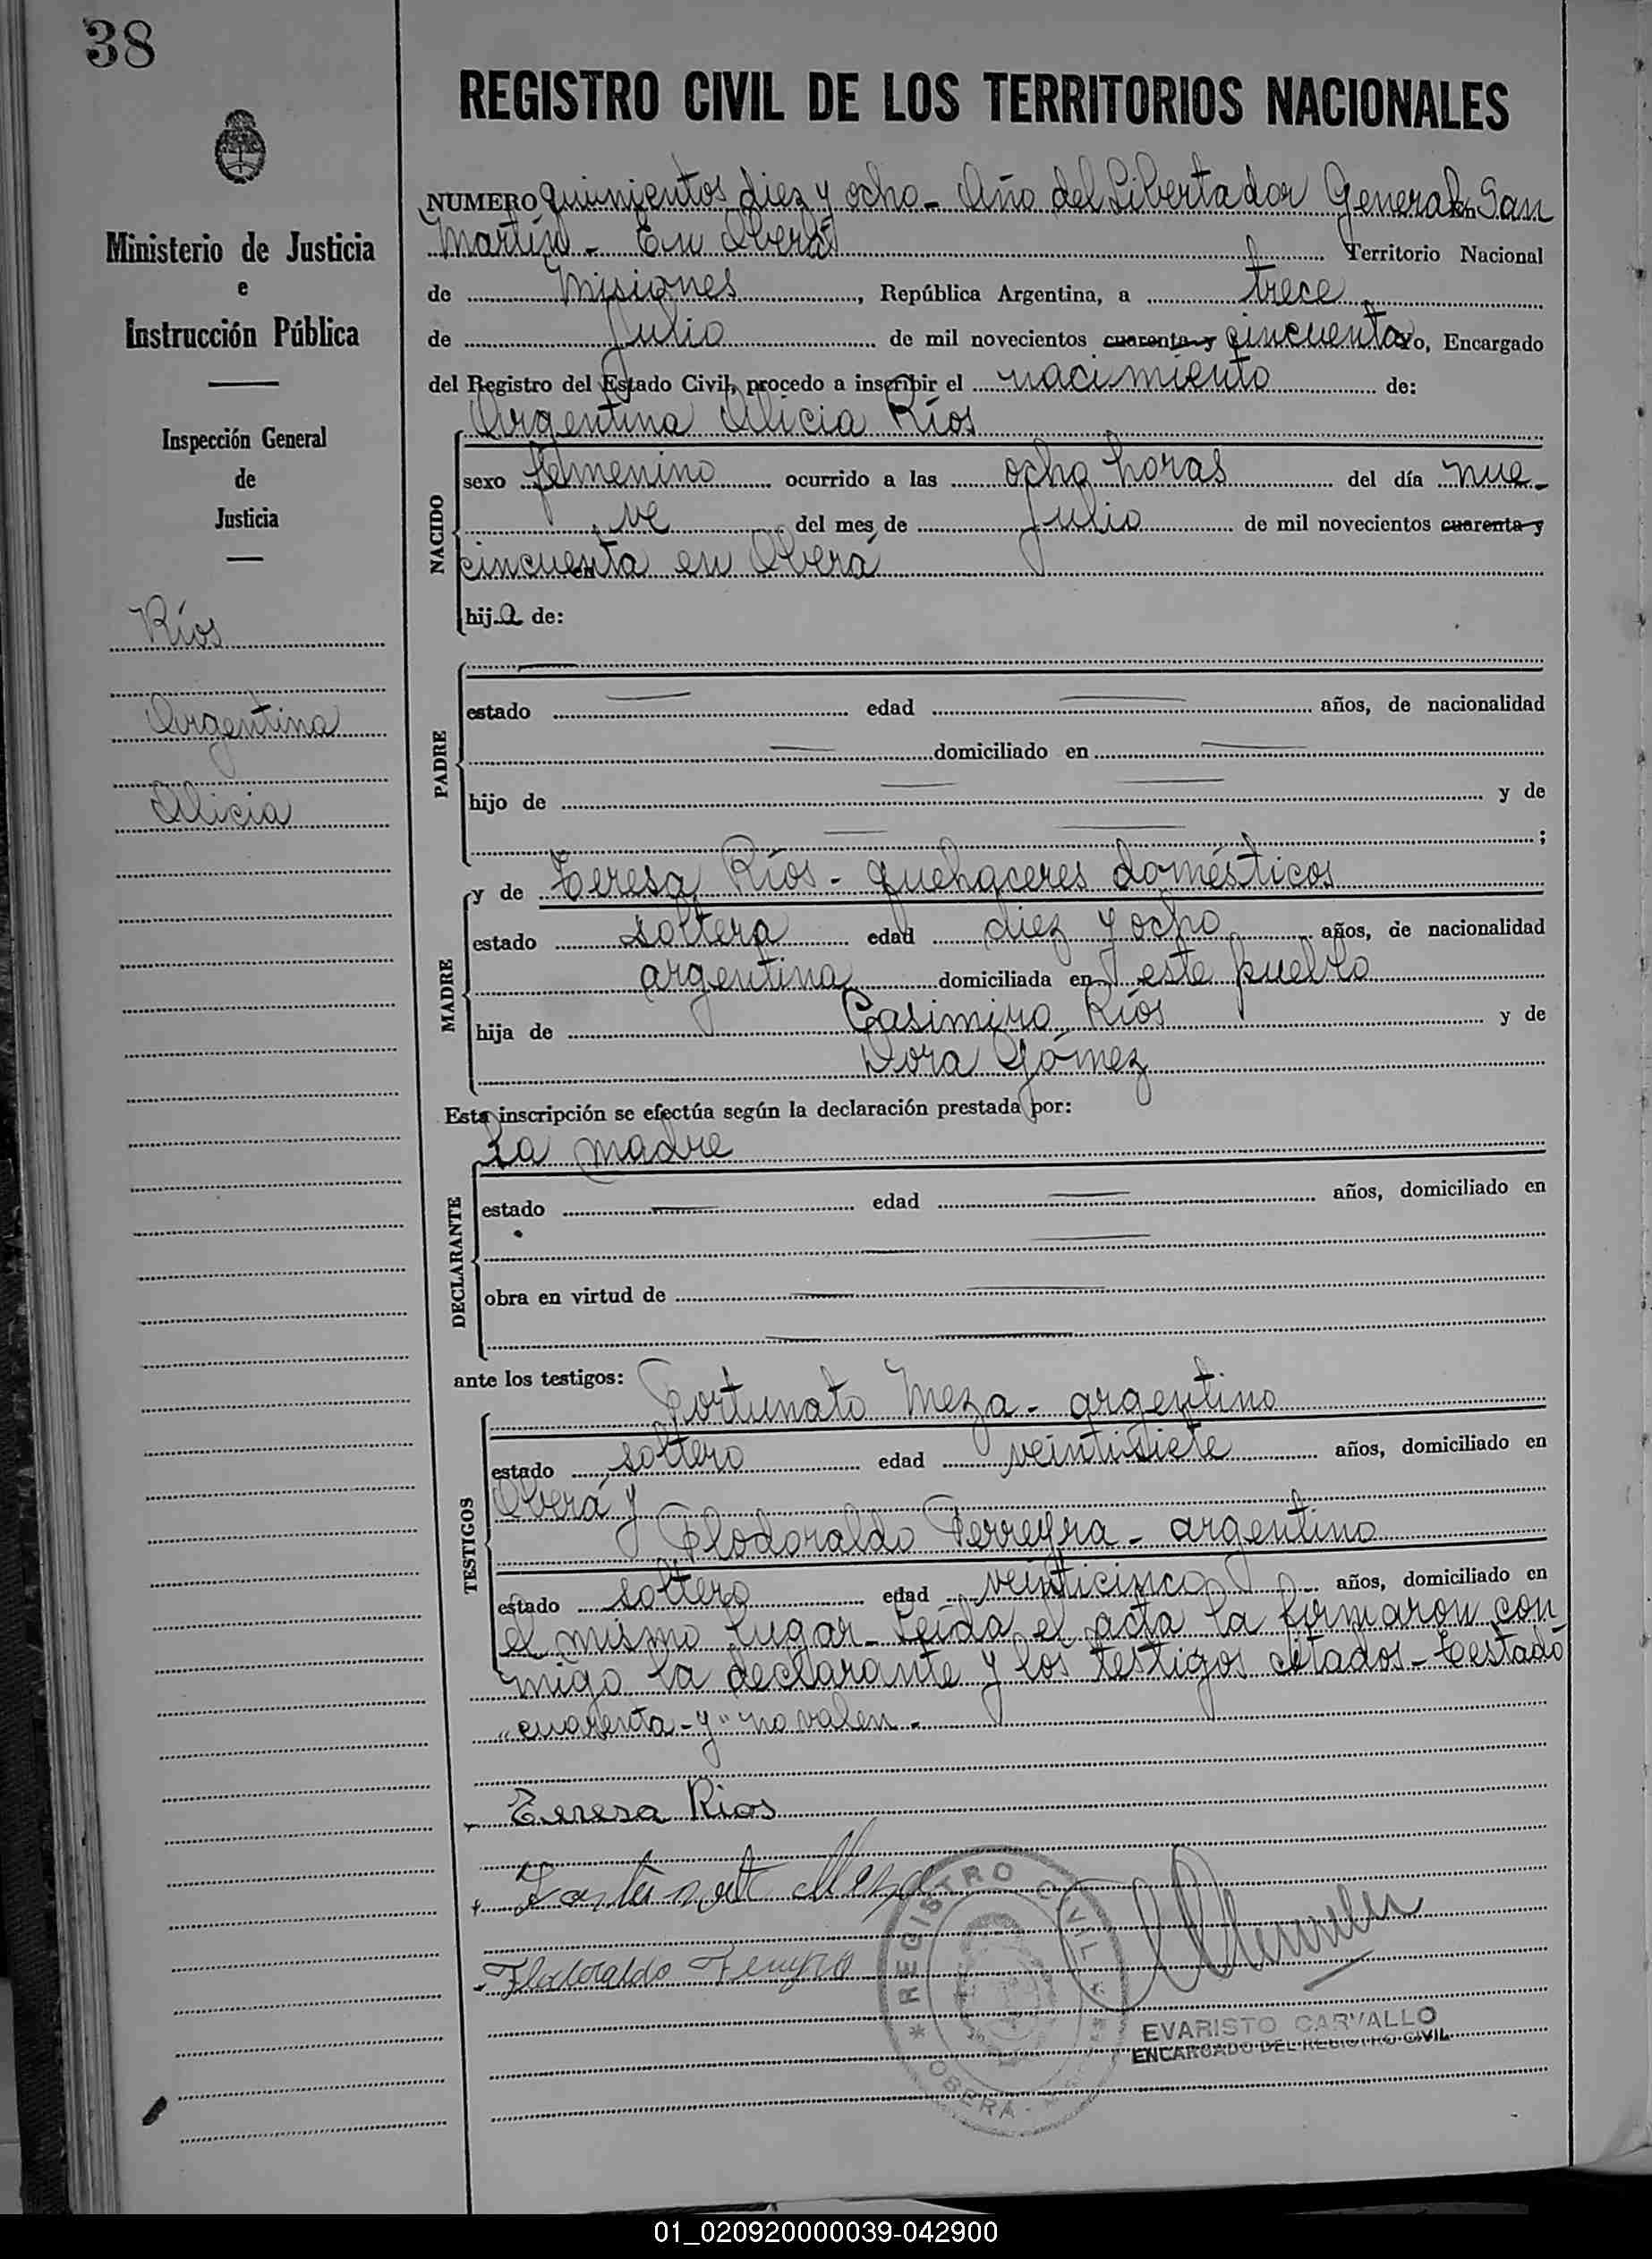 38
REGISTRO CIVIL DE LOS TERRITORIOS NACIONALES
Ministerio de Justicia
e
Instrucción Pública
Inspección General
de
Justicia
Ríos
Argentina
Alicia
NUMERO quinientos diez y ocho - Año del Libertador General San
Martín - En Oberá Territorio Nacional
de Misiones, República Argentina, a trece
de Julio de mil novecientos cuarenta y cincuenta yo, Encargado
del Registro del Estado Civil, procedo a inscribir el nacimiento de:
Argentina Alicia Ríos
NACIDO
sexo femenino ocurrido a las ocho horas del día nue-
ve del mes de Julio de mil novecientos cuarenta y
cincuenta en Oberá
hija de:
PADRE
estado edad años, de nacionalidad
domiciliado en
hijo de y de
;
MADRE
y de Teresa Ríos - quehaceres domésticos
estado soltera edad diez y ocho años, de nacionalidad
argentina domiciliada en este pueblo
hija de Casimiro Ríos y de
Dora Gómez
Esta inscripción se efectúa según la declaración prestada por:
La madre
DECLARANTE
estado edad años, domiciliado en
obra en virtud de
ante los testigos:
TESTIGOS
Fortunato Meza - argentino
estado soltero edad veintisiete años, domiciliado en
Oberá y
Flodoraldo Ferreyra - argentino
estado soltero edad veinticinco años, domiciliado en
el mismo lugar - Leída el acta la firmaron con
migo la declarante y los testigos citados - Testado
"cuarenta - y" no valen -
Teresa Rios
Fortunato Meza
Flodoraldo Ferreyra
REGISTRO CIVIL
OBERA
EVARISTO CARVALLO
ENCARGADO DEL REGISTRO CIVIL
01_020920000039-042900